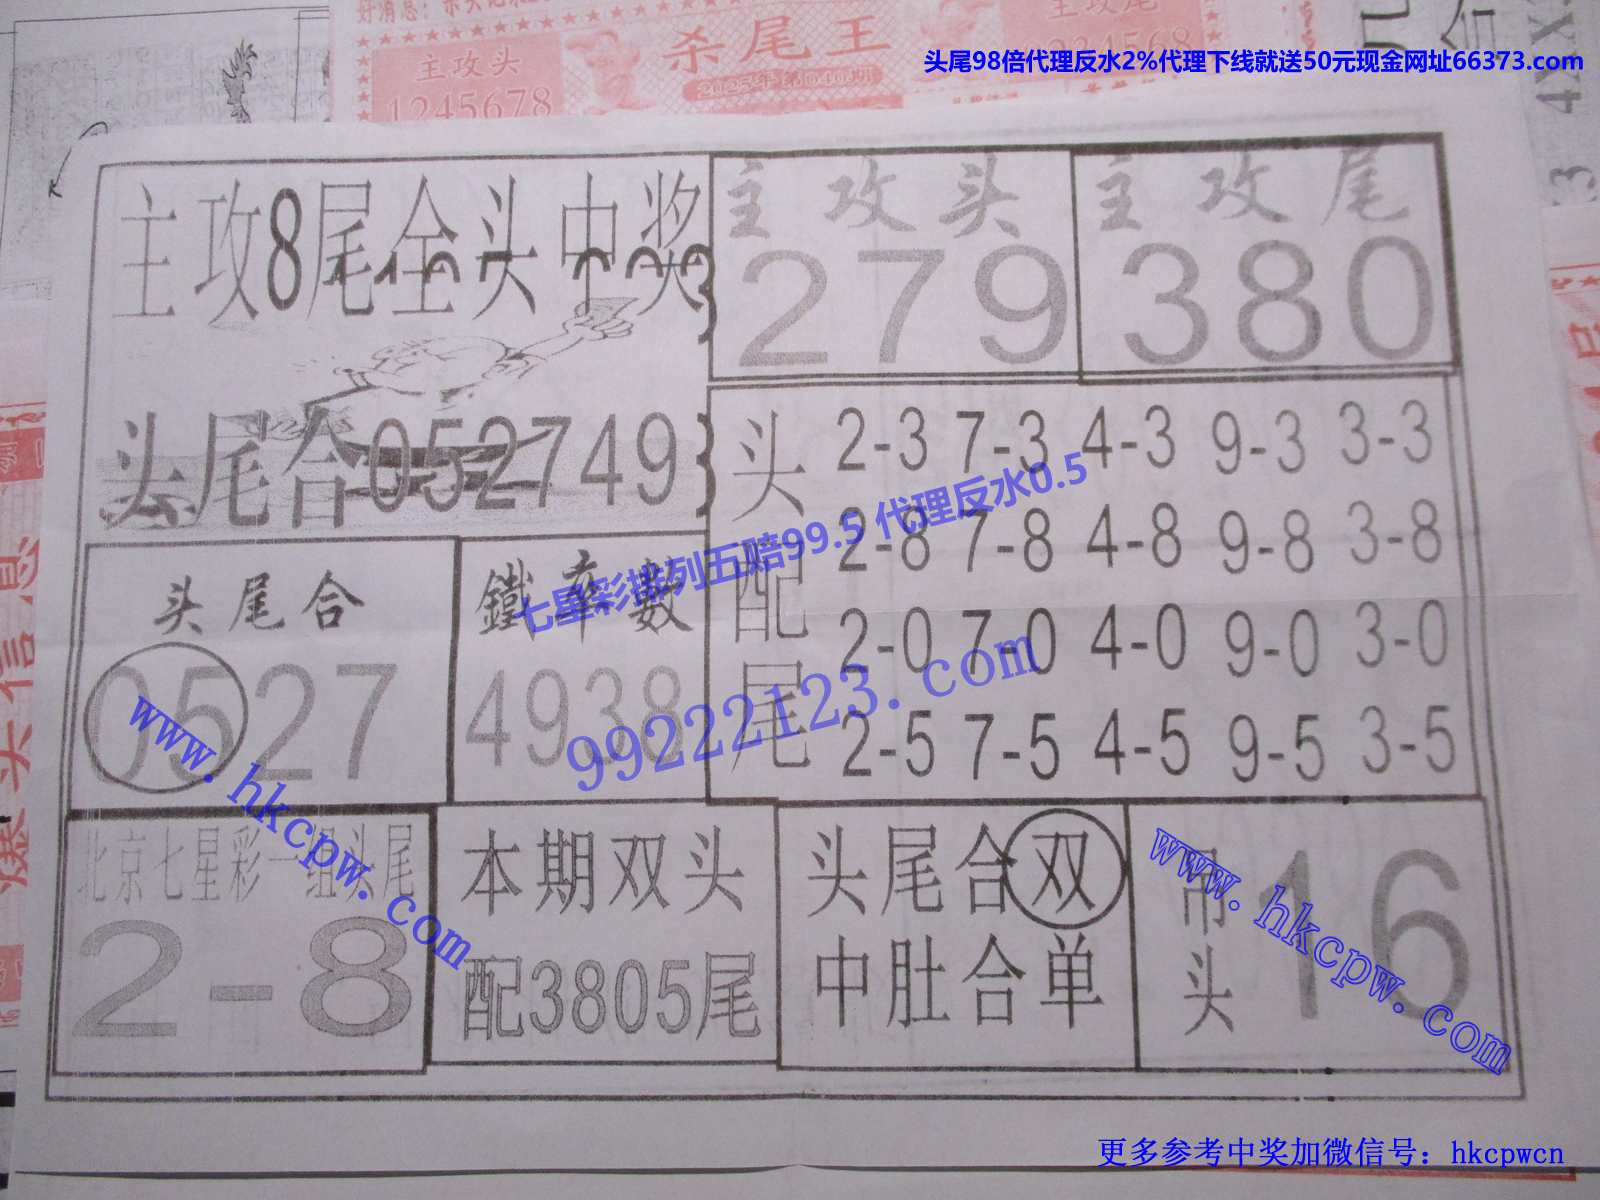 主攻头
1245678
杀尾王
2025年第040期
主攻尾
头尾98倍代理反水2%代理下线就送50元现金网址66373.com
主攻8尾全头中奖
主攻头
279
主攻尾
380
头尾合052749
头配尾
2-3 7-3 4-3 9-3 3-3
2-8 7-8 4-8 9-8 3-8
2-0 7-0 4-0 9-0 3-0
2-5 7-5 4-5 9-5 3-5
七星彩排列五赔99.5 代理反水0.5
99222123.com
头尾合
0527
鐵率數
4938
www.hkcpw.com
北京七星彩一组头尾
2-8
本期双头
配3805尾
头尾合双
中肚合单
吊头
16
www.hkcpw.com
更多参考中奖加微信号：hkcpwcn